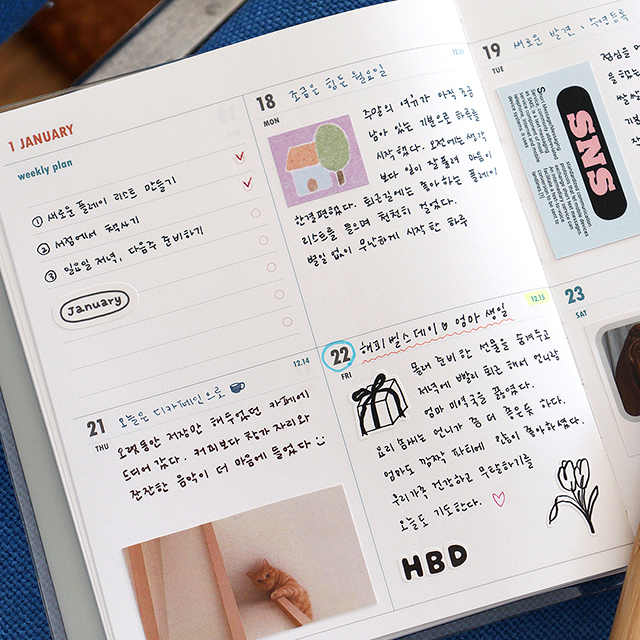 1 JANUARY
weekly plan
① 새로운 플레이 리스트 만들기
② 서점에서 책사기
③ 일요일 저녁, 다음주 준비하기
January
18
MON
12.11
조금은 힘든 월요일
주말의 여유가 아직 조금
남아 있는 기분으로 하루를
시작했다. 오전에는 생각
보다 일이 잘 풀려 마음이
한결 편했다. 퇴근길에는 좋아하는 플레이
리스트를 들으며 천천히 걸었다.
별일 없이 무난하게 시작한 하루
19
TUE
새로운 발견, 수영등록
점심을
SNS
21
THU
12.14
오늘은 디카페인으로
오랫동안 저장만 해두었던 카페에
드디어 갔다. 커피보다 창가 자리와
잔잔한 음악이 더 마음에 들었다
22
FRI
12.15
해피벌스데이 엄마 생일
몰래 준비한 선물을 숨겨두고
저녁에 빨리 퇴근해서 언니랑
엄마 미역국을 끓였다.
요리 솜씨는 언니가 좀 더 좋은듯 하다.
엄마도 깜짝 파티에 많이 좋아하셨다.
우리가족 건강하고 무탈하기를
오늘도 기도한다. ♡
HBD
23
SAT